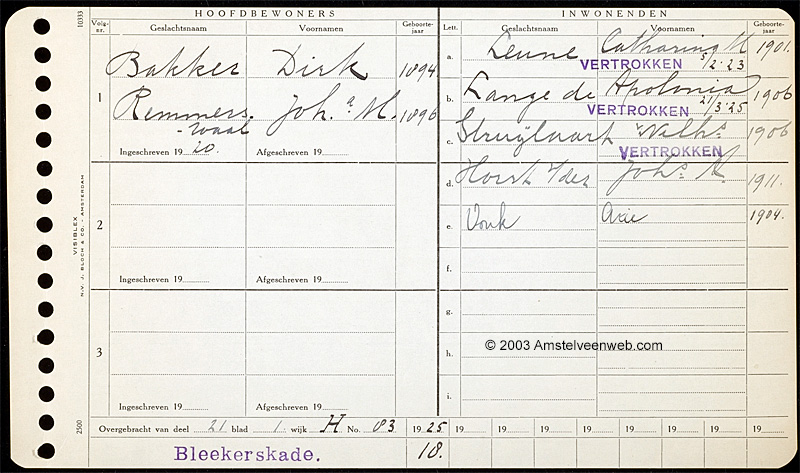 HOOFDBEWONERS
INWONENDEN
10333
Volg-nr.
Geslachtsnaam
Voornamen
Geboorte-jaar
Lett.
Geslachtsnaam
Voornamen
Geboorte-jaar
1
Bakker Dirk 1894
Remmers. Joh.a M. 1896
-waal
Ingeschreven 19 20. Afgeschreven 19
a. Leune Catharina M 1901.
VERTROKKEN 5/2-23
b. Lange de Apolonia 1906
VERTROKKEN 21/3.25
c. Struijlaart Wilhs 1906
VERTROKKEN
d. Horst v/der Johs M. 1911.
2
e. Vonk Arie 1904.
f.
Ingeschreven 19 Afgeschreven 19
3
g.
h.
© 2003 Amstelveenweb.com
i.
Ingeschreven 19 Afgeschreven 19
VISIBLEX
N.V. J. BLOCH & CO. - AMSTERDAM
2500
Overgebracht van deel 21 blad 1. wijk H No. 83 1925 19 19 19 19 19 19 19 19
Bleekerskade. 18.